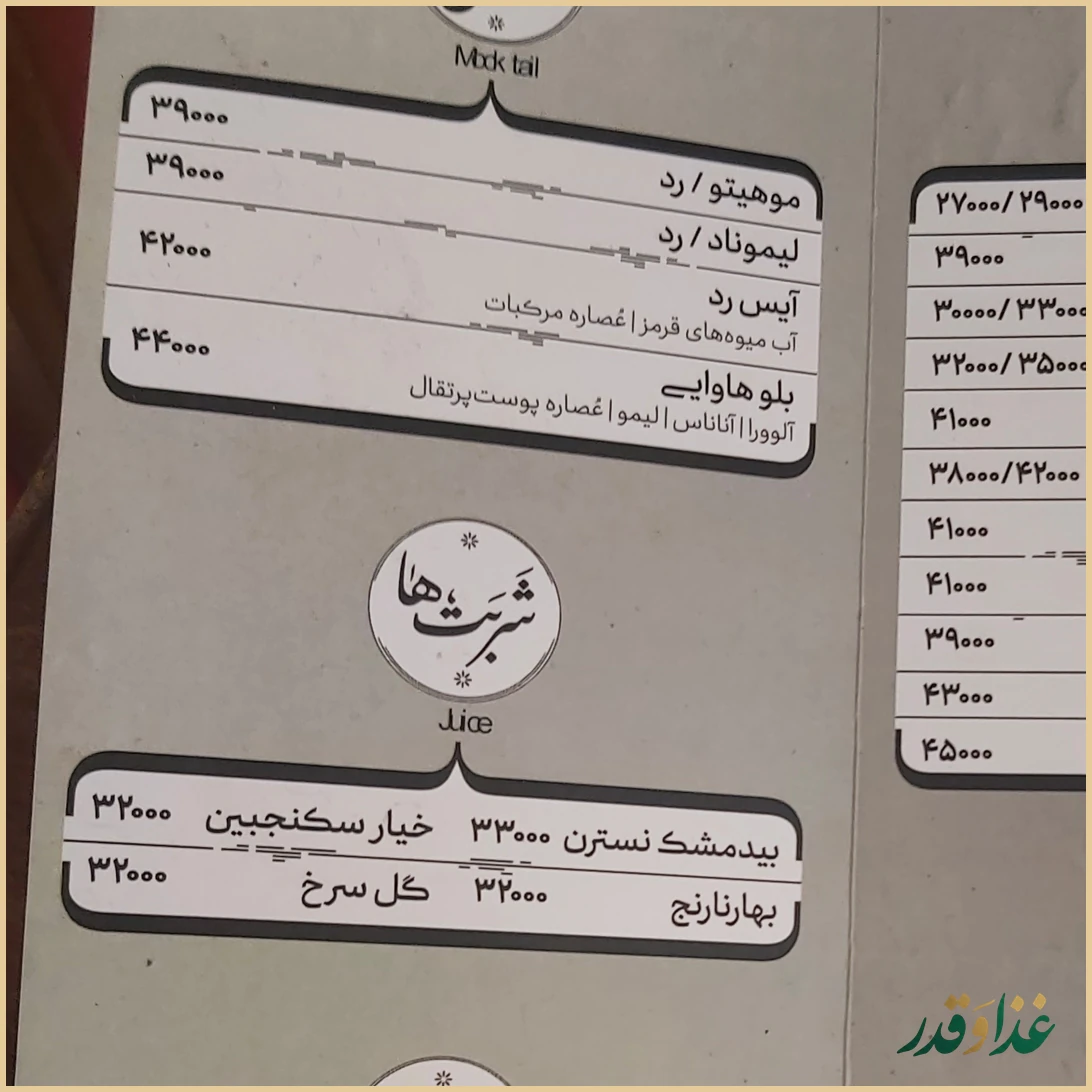 Mock tail
موهیتو / رد ۳۹۰۰۰
لیموناد / رد ۳۹۰۰۰
آیس رد ۴۲۰۰۰
آب میوه‌های قرمز | عُصاره مرکبات
بلو هاوایی ۴۴۰۰۰
آلوورا | آناناس | لیمو | عُصاره پوست پرتقال
شربت‌ها
Juice
بیدمشک نسترن ۳۳۰۰۰ خیار سکنجبین ۳۲۰۰۰
بهارنارنج ۳۲۰۰۰ گل سرخ ۳۲۰۰۰
۲۷۰۰۰/۲۹۰۰۰
۳۹۰۰۰
۳۰۰۰۰/۳۳۰۰۰
۳۲۰۰۰/۳۵۰۰۰
۴۱۰۰۰
۳۸۰۰۰/۴۲۰۰۰
۴۱۰۰۰
۴۱۰۰۰
۳۹۰۰۰
۴۳۰۰۰
۴۵۰۰۰
غذا و قدر